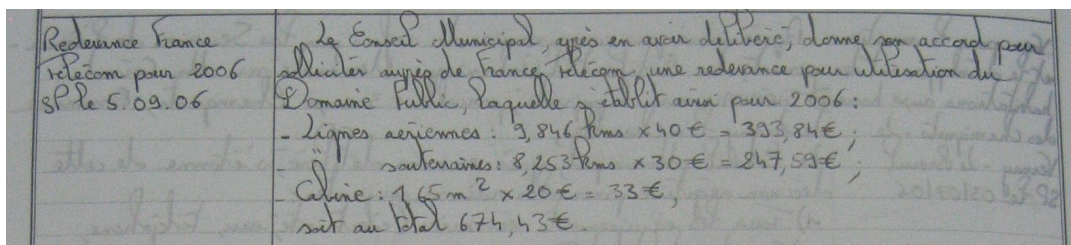 Redevance France
Télécom pour 2006
SP le 5.09.06
Le Conseil Municipal, après en avoir délibéré, donne son accord pour
solliciter auprès de France Télécom, une redevance pour utilisation du
Domaine Public, laquelle s'établit ainsi pour 2006 :
- Lignes aériennes : 9,846 kms x 40 € = 393,84 € ;
- " souterraines : 8,253 kms x 30 € = 247,59 € ;
- Cabine : 1,65 m² x 20 € = 33 €,
soit au total 674,43 €.